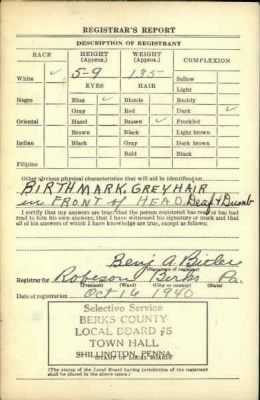 REGISTRAR'S REPORT
DESCRIPTION OF REGISTRANT
RACE HEIGHT (Approx.) WEIGHT (Approx.) COMPLEXION
5-9 195
White ✓ EYES HAIR Sallow
Light
Negro Blue ✓ Blonde Ruddy
Gray Red Dark ✓
Oriental Hazel Brown ✓ Freckled
Brown Black Light brown
Indian Black Gray Dark brown
Bald Black
Filipino
Other obvious physical characteristics that will aid in identification
BIRTHMARK, GREY HAIR
in FRONT of HEAD. Deaf & Dumb
I certify that my answers are true; that the person registered has read or has had
read to him his own answers; that I have witnessed his signature or mark and that
all of his answers of which I have knowledge are true, except as follows:
Benj A.
(Signature of registrar)
Registrar for Robeson Berks Pa.
(Precinct) (Ward) (City or county) (State)
Date of registration Oct 16 1940
Selective Service
BERKS COUNTY
LOCAL BOARD #5
TOWN HALL
SHILLINGTON, PENNA
(STAMP OF LOCAL BOARD)
(The stamp of the Local Board having jurisdiction of the registrant
shall be placed in the above space.)